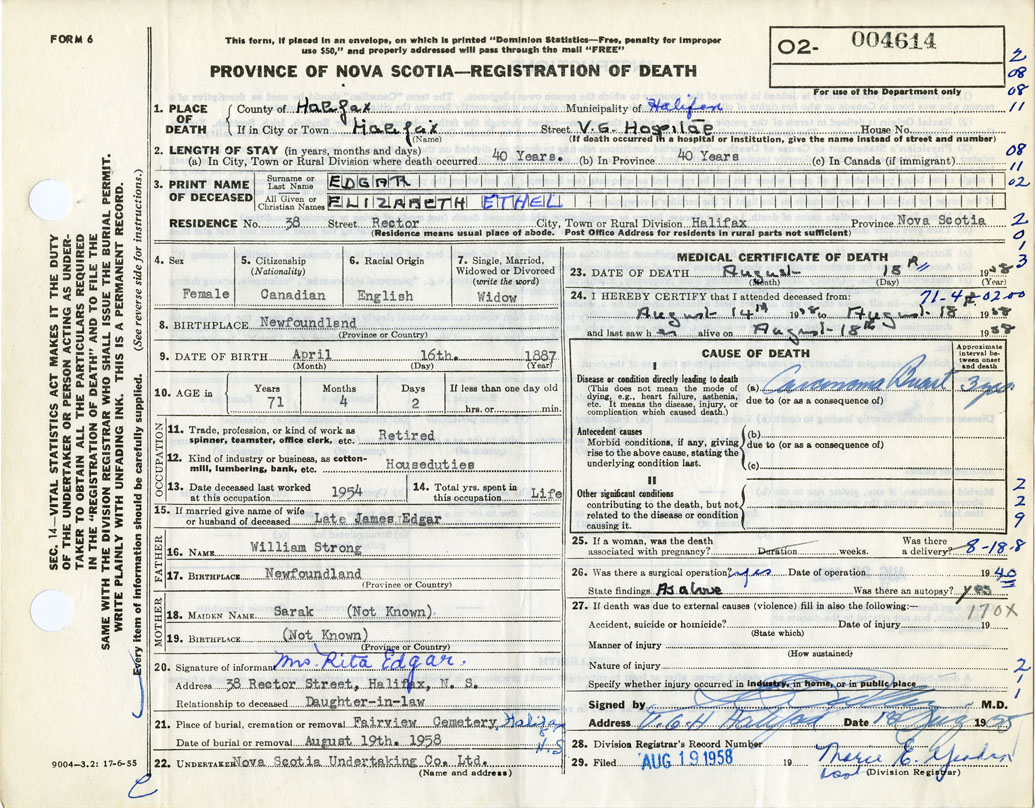 FORM 6
This form, if placed in an envelope, on which is printed "Dominion Statistics—Free, penalty for improper
use $50," and properly addressed will pass through the mail "FREE"
PROVINCE OF NOVA SCOTIA—REGISTRATION OF DEATH
O2- 004614
For use of the Department only
2
08
08
11
08
11
02
2
0
1
3
SEC. 14—VITAL STATISTICS ACT MAKES IT THE DUTY
OF THE UNDERTAKER OR PERSON ACTING AS UNDER-
TAKER TO OBTAIN ALL THE PARTICULARS REQUIRED
IN THE "REGISTRATION OF DEATH" AND TO FILE THE
SAME WITH THE DIVISION REGISTRAR WHO SHALL ISSUE THE BURIAL PERMIT.
WRITE PLAINLY WITH UNFADING INK. THIS IS A PERMANENT RECORD.
Every item of information should be carefully supplied. (See reverse side for instructions.)
1. PLACE OF DEATH
County of Halifax Municipality of Halifax
If in City or Town Halifax Street V.G. Hospital House No.
(Name) (If death occurred in hospital or institution, give name instead of street and number)
2. LENGTH OF STAY (in years, months and days)
(a) In City, Town or Rural Division where death occurred 40 Years. (b) In Province 40 Years (c) In Canada (if immigrant)
3. PRINT NAME OF DECEASED
Surname or Last Name EDGAR
All Given or Christian Names ELIZABETH ETHEL
RESIDENCE No. 38 Street Rector City, Town or Rural Division Halifax Province Nova Scotia
(Residence means usual place of abode. Post Office Address for residents in rural parts not sufficient)
4. Sex Female
5. Citizenship (Nationality) Canadian
6. Racial Origin English
7. Single, Married, Widowed or Divorced (write the word) Widow
8. BIRTHPLACE Newfoundland
(Province or Country)
9. DATE OF BIRTH April 16th. 1887
(Month) (Day) (Year)
10. AGE in Years 71 Months 4 Days 2 If less than one day old hrs. or min.
OCCUPATION
11. Trade, profession, or kind of work as
spinner, teamster, office clerk, etc. Retired
12. Kind of industry or business, as cotton-
mill, lumbering, bank, etc. Houseduties
13. Date deceased last worked at this occupation 1954 14. Total yrs. spent in this occupation Life
15. If married give name of wife
or husband of deceased Late James Edgar
FATHER
16. NAME William Strong
17. BIRTHPLACE Newfoundland
(Province or Country)
MOTHER
18. MAIDEN NAME Sarak (Not Known)
19. BIRTHPLACE (Not Known)
(Province or Country)
20. Signature of informant Mrs. Rita Edgar.
Address 38 Rector Street, Halifax, N. S.
Relationship to deceased Daughter-in-law
21. Place of burial, cremation or removal Fairview Cemetery, Halifax
N.S
Date of burial or removal August 19th. 1958
22. UNDERTAKER Nova Scotia Undertaking Co. Ltd.
(Name and address)
9004-3.2: 17-6-55
MEDICAL CERTIFICATE OF DEATH
23. DATE OF DEATH August 18th 1958
(Month) (Day) (Year)
24. I HEREBY CERTIFY that I attended deceased from:
August 14th 1958 to August 18th 1958
and last saw her alive on August 18th 1958
CAUSE OF DEATH
Approximate interval between onset and death
I
Disease or condition directly leading to death
(This does not mean the mode of
dying, e.g., heart failure, asthenia,
etc. It means the disease, injury, or
complication which caused death.)
(a) Carcinoma Breast
due to (or as a consequence of)
Antecedent causes
Morbid conditions, if any, giving
rise to the above cause, stating the
underlying condition last.
(b)
due to (or as a consequence of)
(c)
II
Other significant conditions
contributing to the death, but not
related to the disease or condition
causing it.
2
2
9
25. If a woman, was the death
associated with pregnancy? Duration weeks. Was there a delivery? 8-18-8
26. Was there a surgical operation? yes Date of operation 19 40
State findings As above Was there an autopsy? yes
27. If death was due to external causes (violence) fill in also the following: 170X
Accident, suicide or homicide? Date of injury 19
(State which)
Manner of injury
(How sustained)
Nature of injury
Specify whether injury occurred in industry, in home, or in public place
2
1
1
Signed by M.D.
Address V.G.H Halifax Date 18 Aug 1958
28. Division Registrar's Record Number
29. Filed AUG 19 1958 19
(Division Registrar)